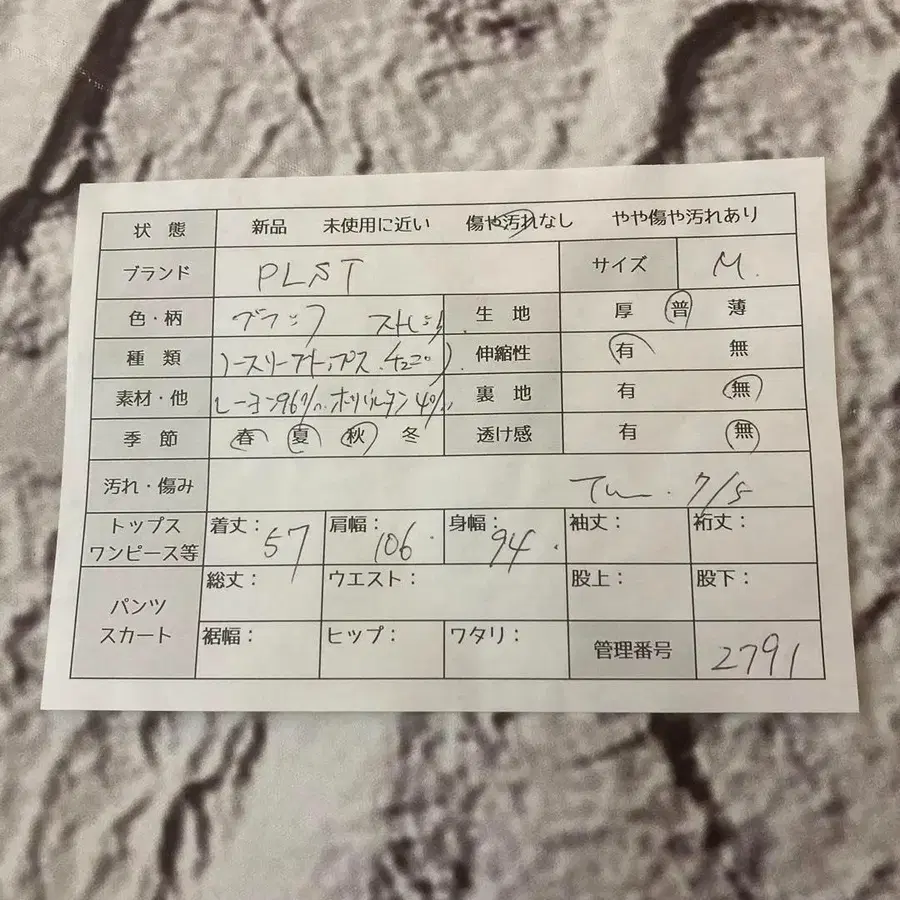 状態 新品 未使用に近い 傷や汚れなし やや傷や汚れあり
ブランド PLST サイズ M.
色・柄 ブラック ストレッチ 生地 厚 普 薄
種類 ノースリーブトップス 伸縮性 有 無
素材・他 レーヨン96%. ポリウレタン4% 裏地 有 無
季節 春 夏 秋 冬 透け感 有 無
汚れ・傷み 7/5
トップス ワンピース等 着丈: 57 肩幅: 106 身幅: 94 袖丈: 裄丈:
パンツ スカート 総丈: ウエスト: 股上: 股下:
裾幅: ヒップ: ワタリ: 管理番号 2791